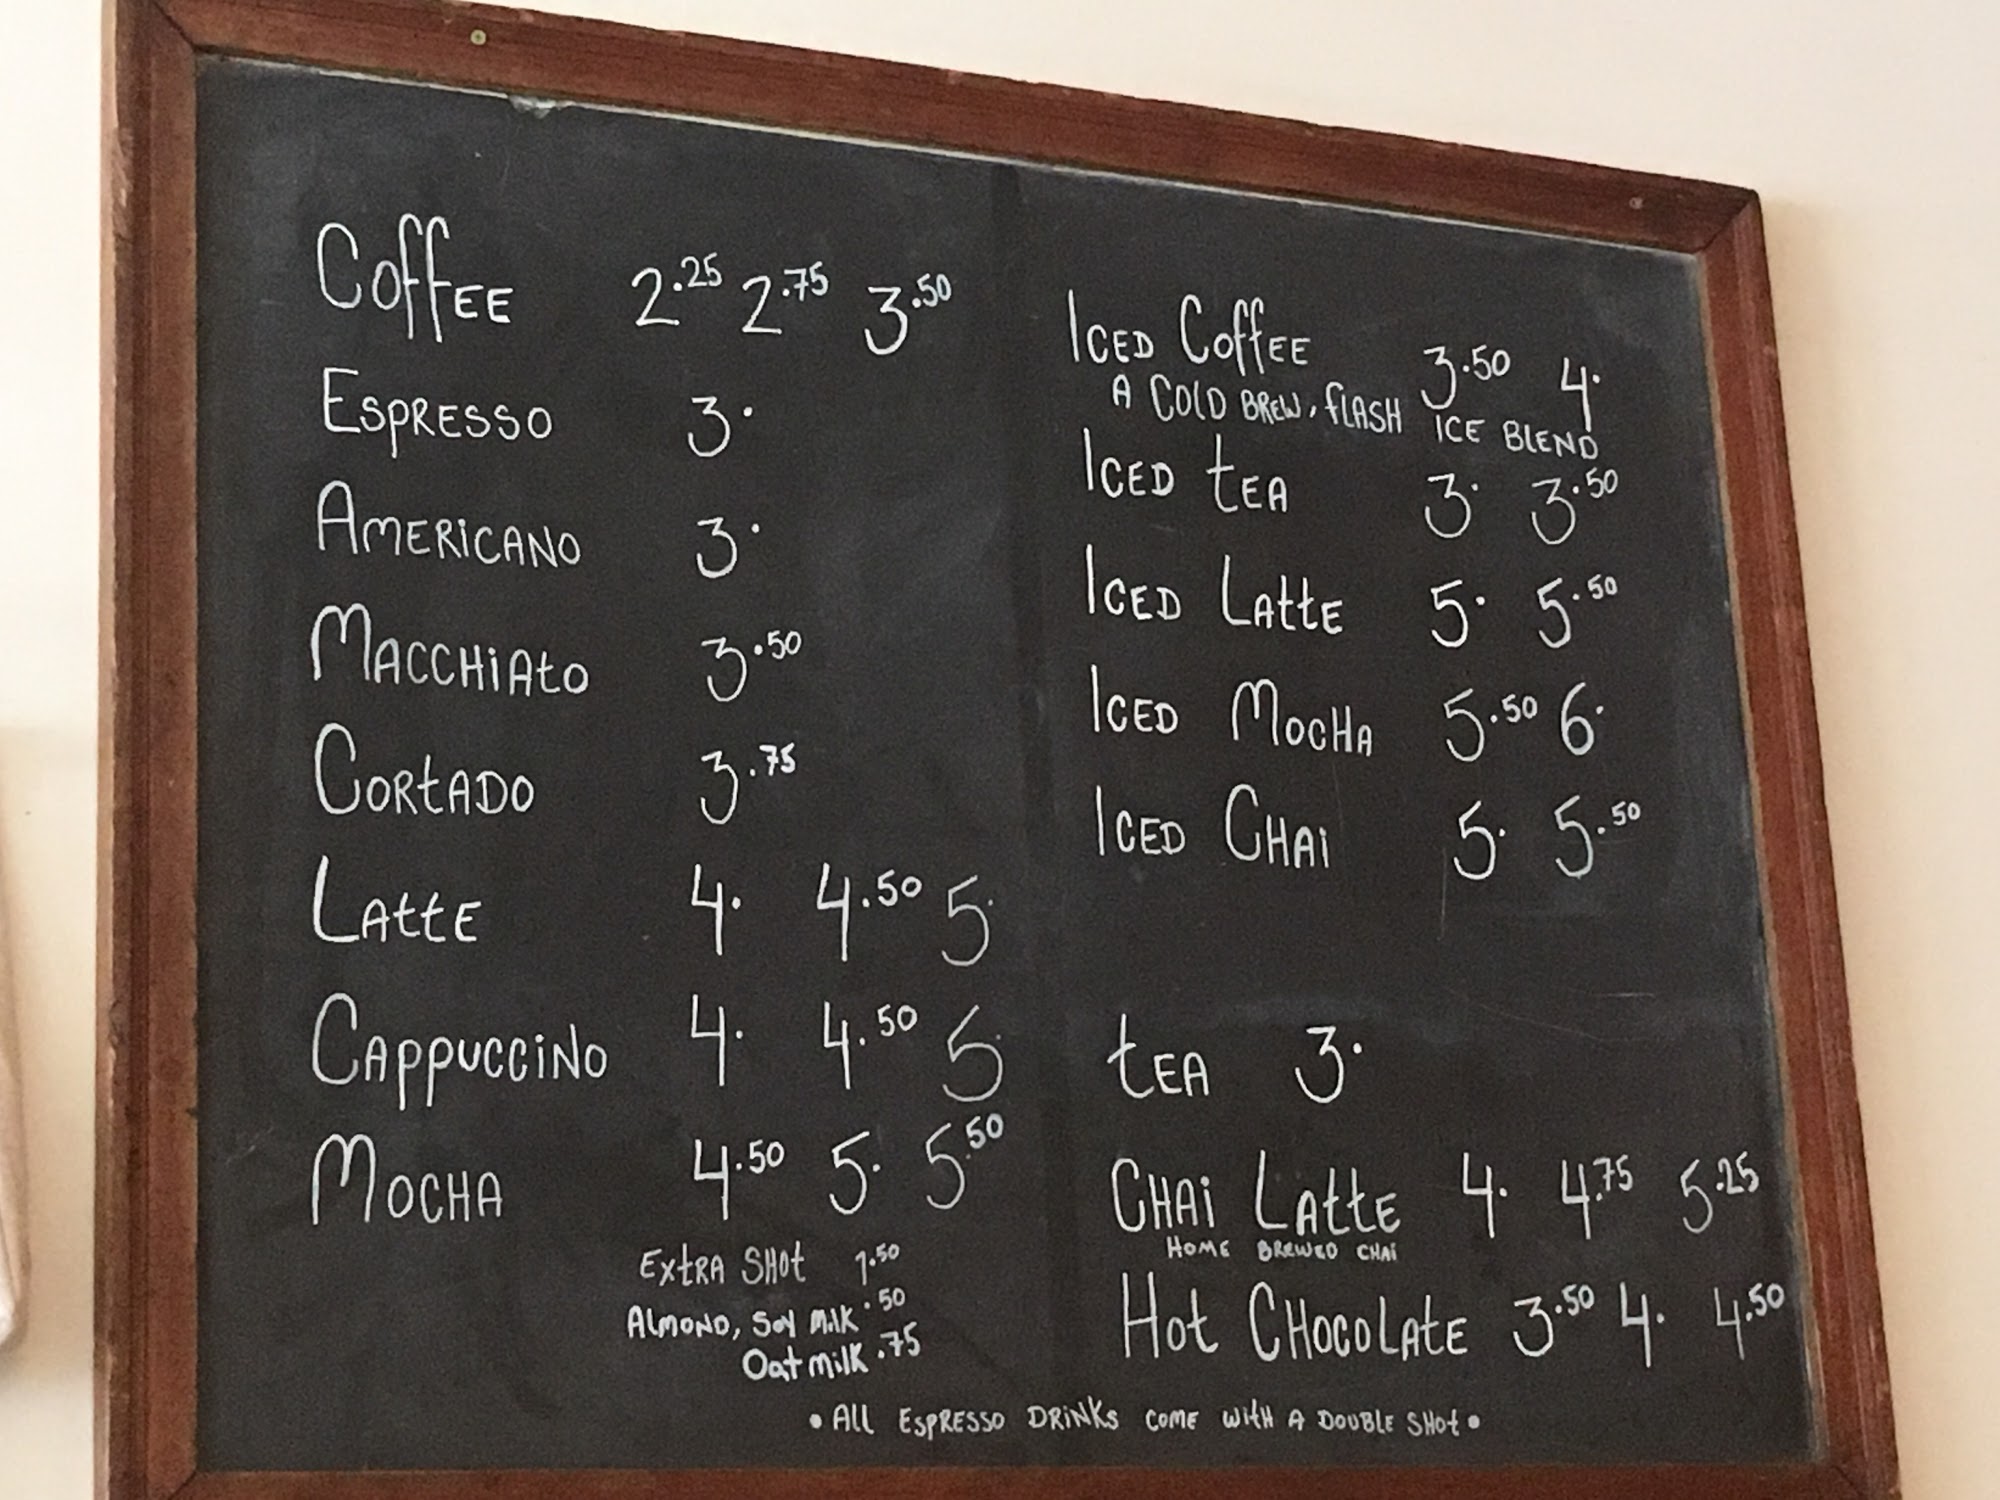 CoffEE 2.25 2.75 3.50
ESPRESSO 3.
AMERiCANO 3.
MACCHiAtO 3.50
CORtADO 3.75
LAttE 4. 4.50 5.
CAPPUCCiNO 4. 4.50 5.
MOCHA 4.50 5. 5.50
EXtRA SHOt 1.50
ALMOND, SOY MiLK .50
Oat MiLK .75
ICED CoffEE 3.50 4.
A COLD BREW, fLASH ICE BLEND
ICED tEA 3. 3.50
ICED LAttE 5. 5.50
ICED MOCHA 5.50 6.
ICED CHAi 5. 5.50
tEA 3.
CHAi LAttE 4. 4.75 5.25
HOME BREWED CHAi
Hot CHOCOLAtE 3.50 4. 4.50
• ALL ESPRESSO DRiNKS COME WitH A DOUBLE SHOt •